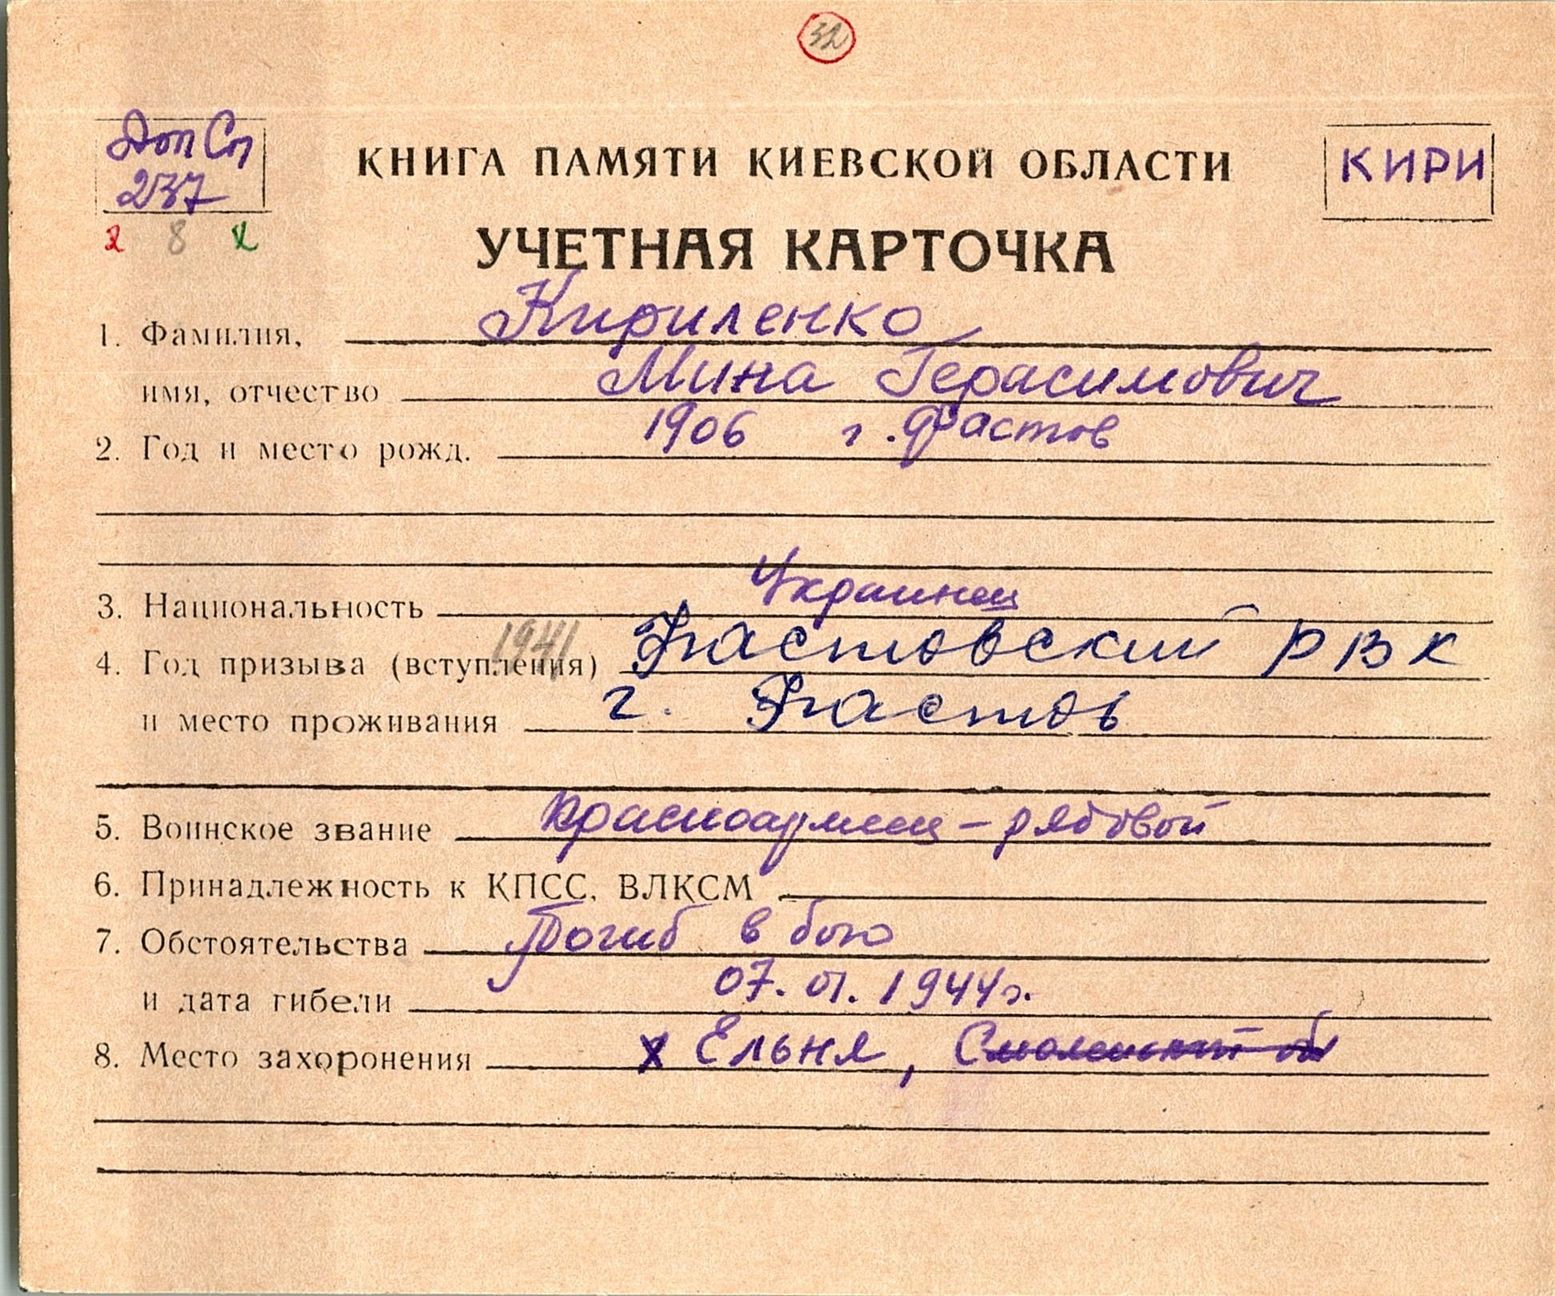 32
Доп Сп
237
2 8 х
КНИГА ПАМЯТИ КИЕВСКОЙ ОБЛАСТИ
КИРИ
УЧЕТНАЯ КАРТОЧКА
1. Фамилия, Кириленко
имя, отчество Мина Герасимович
2. Год и место рожд. 1906 г. Фастов
3. Национальность Украинец
4. Год призыва (вступления) 1941 Фастовский РВК
и место проживания г. Фастов
5. Воинское звание красноармеец - рядовой
6. Принадлежность к КПСС, ВЛКСМ
7. Обстоятельства Погиб в бою
и дата гибели 07.01.1944г.
8. Место захоронения х Ельня, Смоленский об